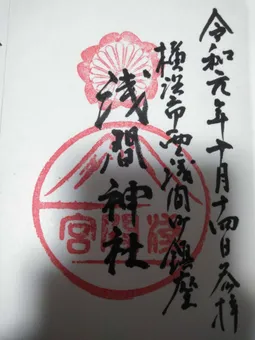 令和元年十月十四日参拝
横浜市西区浅間町鎮座
浅間神社
淺間宮